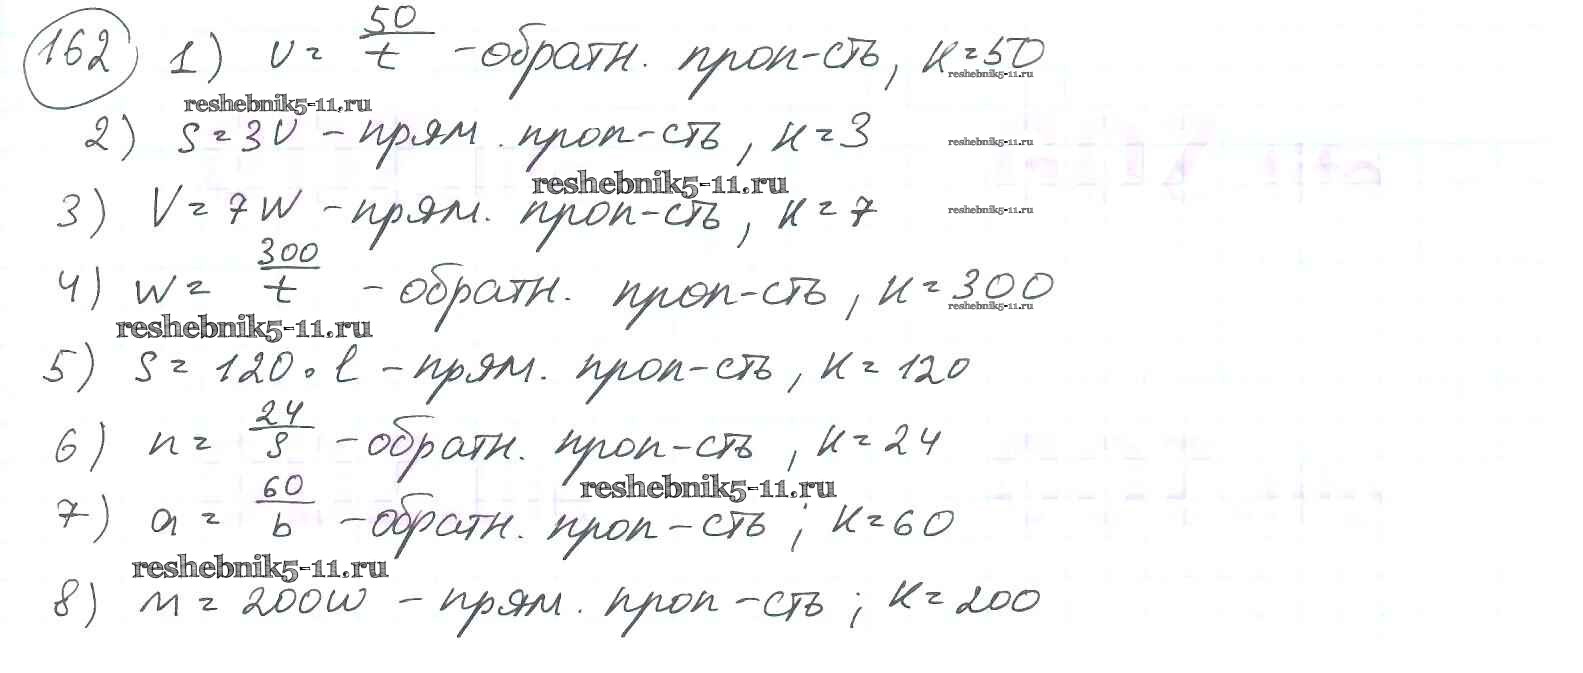 162 1) v = 50/t - обратн. проп-сть, к=50
reshebnik5-11.ru
reshebnik5-11.ru
2) s = 3v - прям. проп-сть, к = 3
reshebnik5-11.ru
reshebnik5-11.ru
3) V = 7w - прям. проп-сть, к = 7
reshebnik5-11.ru
4) w = 300/t - обратн. проп-сть, к = 300
reshebnik5-11.ru
reshebnik5-11.ru
5) s = 120 · l - прям. проп-сть, к = 120
6) n = 24/s - обратн. проп-сть, к = 24
reshebnik5-11.ru
7) a = 60/b - обратн. проп-сть; к = 60
reshebnik5-11.ru
8) m = 200w - прям. проп-сть; к = 200